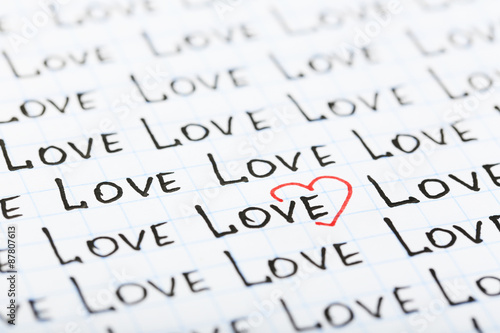 LOVE
LOVE LOVE LOVE LOVE
LOVE LOVE LOVE LOVE
LOVE LOVE LOVE LOVE
LOVE LOVE LOVE
LOVE LOVE LOVE
LOVE LOVE LOVE
LOVE LOVE LOVE
Adobe Stock | #87807613